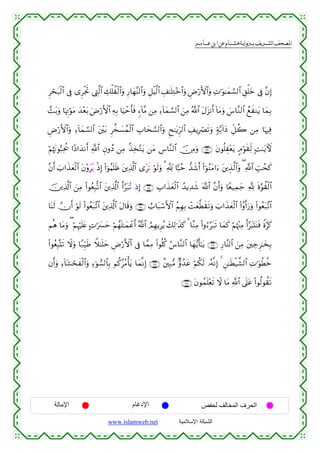 المصحف الشريف برواية هشام عن ابن عامر
إِنَّ فِى خَلْقِ ٱلسَّمَٰوَٰتِ وَٱلْأَرْضِ وَٱخْتِلَٰفِ ٱلَّيْلِ وَٱلنَّهَارِ وَٱلْفُلْكِ ٱلَّتِى تَجْرِى فِى ٱلْبَحْرِ
بِمَا يَنفَعُ ٱلنَّاسَ وَمَآ أَنزَلَ ٱللَّهُ مِنَ ٱلسَّمَآءِ مِن مَّآءٍ فَأَحْيَا بِهِ ٱلْأَرْضَ بَعْدَ مَوْتِهَا وَبَثَّ
فِيهَا مِن كُلِّ دَآبَّةٍ وَتَصْرِيفِ ٱلرِّيَٰحِ وَٱلسَّحَابِ ٱلْمُسَخَّرِ بَيْنَ ٱلسَّمَآءِ وَٱلْأَرْضِ
لَءَايَٰتٍ لِّقَوْمٍ يَعْقِلُونَ وَمِنَ ٱلنَّاسِ مَن يَتَّخِذُ مِن دُونِ ٱللَّهِ أَندَادًا يُحِبُّونَهُمْ
كَحُبِّ ٱللَّهِ وَٱلَّذِينَ ءَامَنُوٓا۟ أَشَدُّ حُبًّا لِّلَّهِ وَلَوْ تَرَى ٱلَّذِينَ ظَلَمُوٓا۟ إِذْ يَرَوْنَ ٱلْعَذَابَ أَنَّ
ٱلْقُوَّةَ لِلَّهِ جَمِيعًا وَأَنَّ ٱللَّهَ شَدِيدُ ٱلْعَذَابِ إِذ تَّبَرَّأَ ٱلَّذِينَ ٱتُّبِعُوا۟ مِنَ ٱلَّذِينَ
ٱتَّبَعُوا۟ وَرَأَوُا۟ ٱلْعَذَابَ وَتَقَطَّعَتْ بِهِمُ ٱلْأَسْبَابُ وَقَالَ ٱلَّذِينَ ٱتَّبَعُوا۟ لَوْ أَنَّ لَنَا
كَرَّةً فَنَتَبَرَّأَ مِنْهُمْ كَمَا تَبَرَّءُوا۟ مِنَّا كَذَٰلِكَ يُرِيهِمُ ٱللَّهُ أَعْمَٰلَهُمْ حَسَرَٰتٍ عَلَيْهِمْ وَمَا هُم
بِخَٰرِجِينَ مِنَ ٱلنَّارِ يَٰٓأَيُّهَا ٱلنَّاسُ كُلُوا۟ مِمَّا فِى ٱلْأَرْضِ حَلَٰلًا طَيِّبًا وَلَا تَتَّبِعُوا۟
خُطُوَٰتِ ٱلشَّيْطَٰنِ إِنَّهُۥ لَكُمْ عَدُوٌّ مُّبِينٌ إِنَّمَا يَأْمُرُكُم بِٱلسُّوٓءِ وَٱلْفَحْشَآءِ وَأَن
تَقُولُوا۟ عَلَى ٱللَّهِ مَا لَا تَعْلَمُونَ
الحرف المخالف لحفص الإدغام الإمالة
الشبكة الإسلامية www.islamweb.net